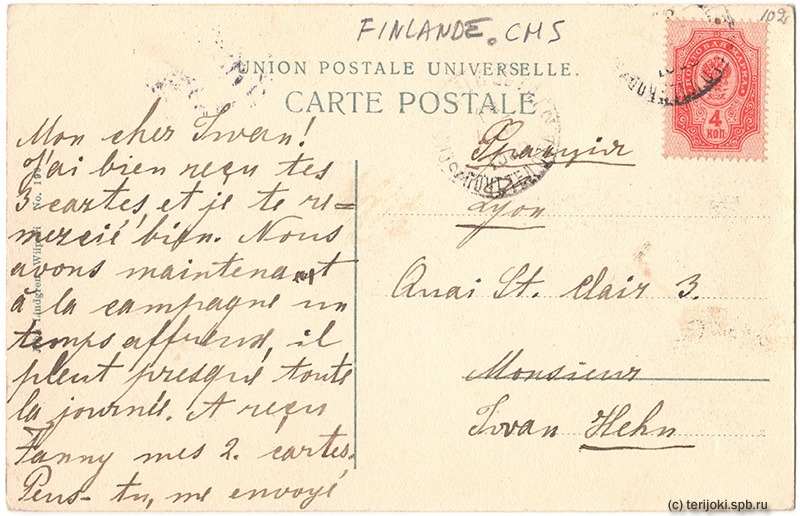 102
FINLANDE. CMS
UNION POSTALE UNIVERSELLE.
CARTE POSTALE
ПОЧТОВАЯ МАРКА
4
КОП.
Mon cher Iwan!
J'ai bien reçu tes
3 cartes, et je te re=
mercié bien. Nous
avons maintenant
à la campagne un
temps affreud, il
pleut presque toute
la journée. A reçu
Fanny mes 2. cartes.
Pens-tu, me envoyé
Lyon
Quai St. Clair 3.
Monsieur
Iwan Hehn
Lindgren, Wiipuri No.
(c) terijoki.spb.ru